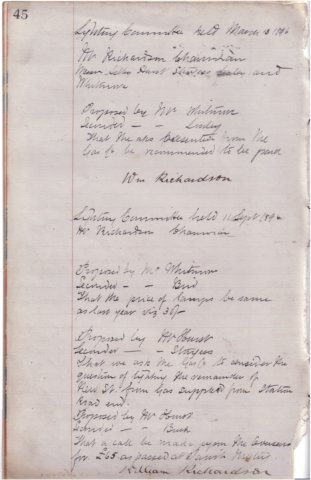 45
Lighting Committee held March 13 1896
Mr Richardson Chairman
and
Whitmore
Proposed by Mr Whitmore
Seconder — —
That the a/cs presented from the
Gas Co be recommended to be paid
Wm Richardson
Lighting Committee held 11 Sept 1896
Mr Richardson Chairman
Proposed by Mr Whitmore
Seconder — — Bird
That the price of lamps be same
as last year viz 30/-
Proposed by Mr Hurst
Seconder — — Sturgess
That we ask the Gas Co to consider the
question of lighting the remainder of
Field St. from Gas supplied from Station
Road end.
Proposed by Mr Hurst
Seconder — —
That a call be made upon the Overseers
for £65 as passed at Parish Meeting
William Richardson